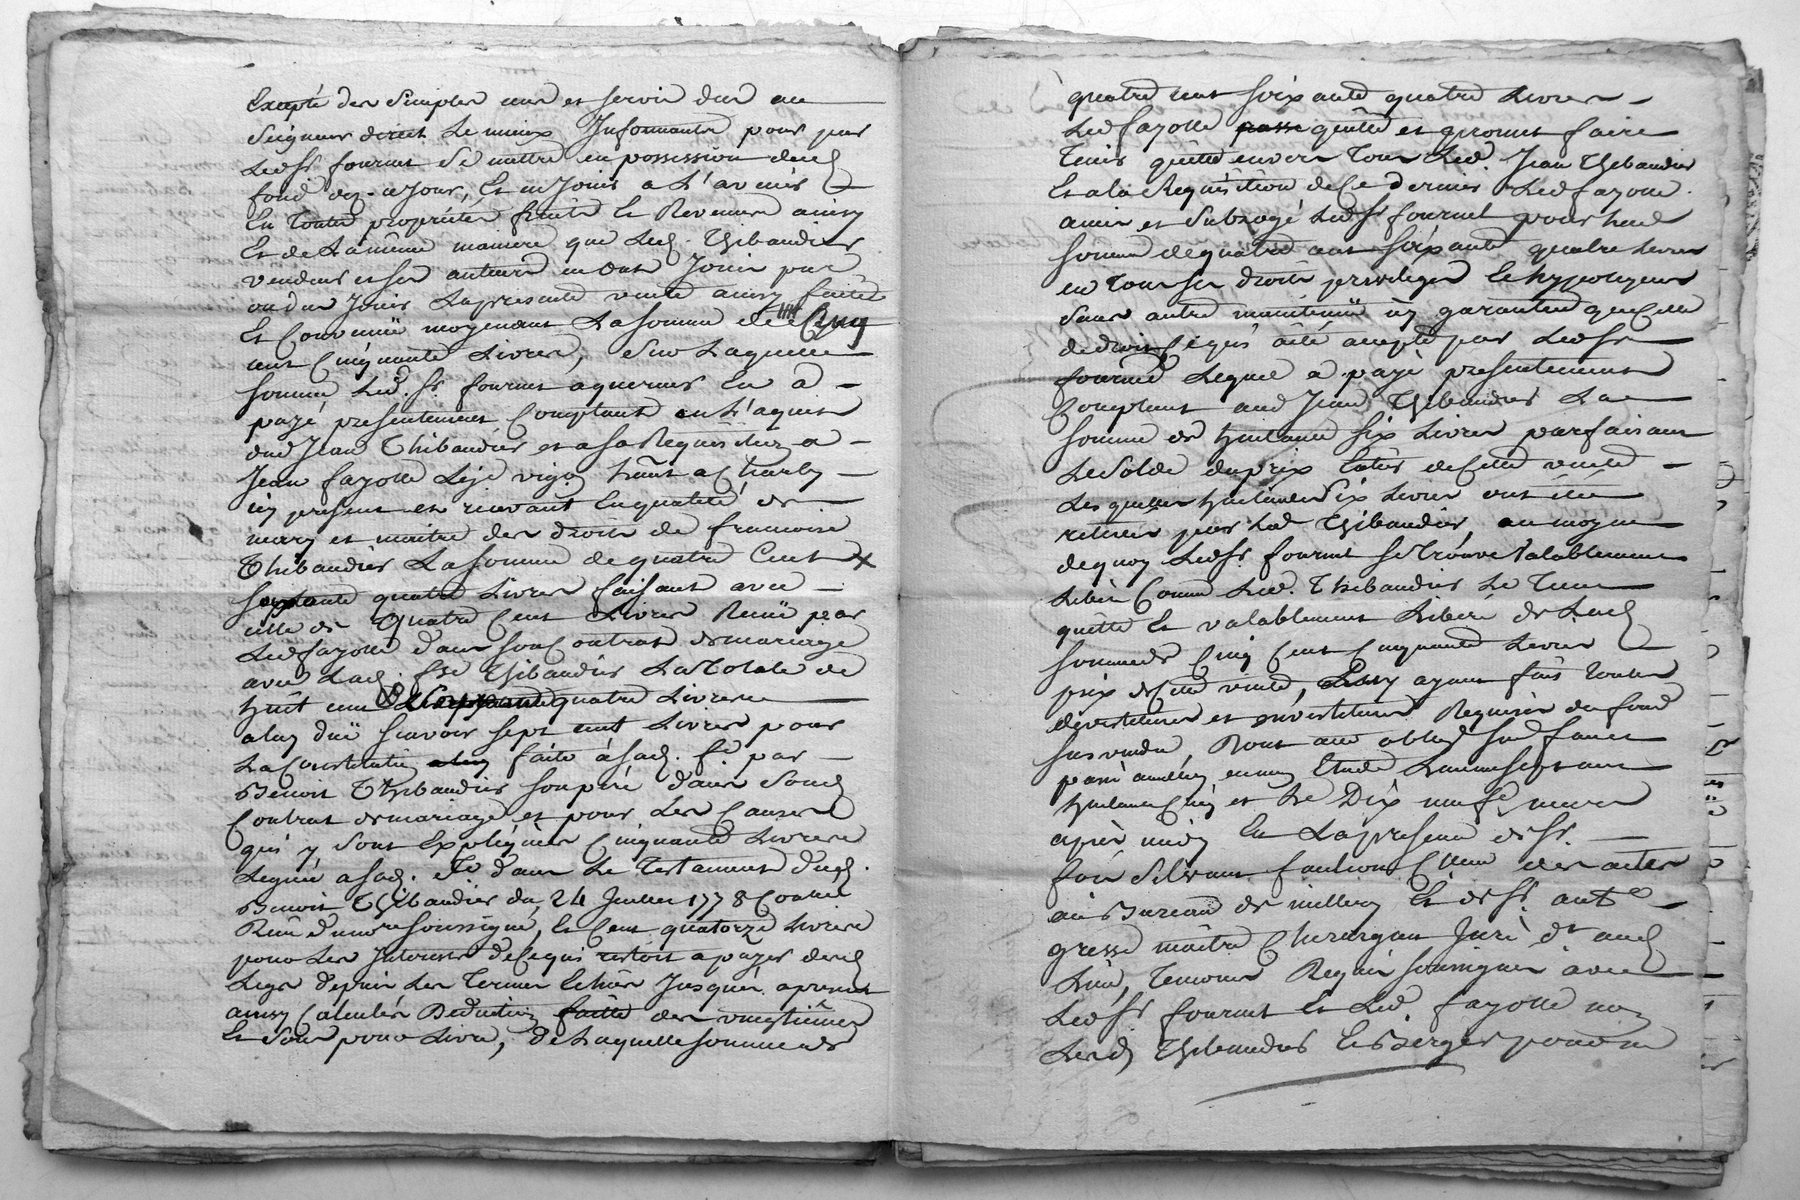 Excepté des simples cens et servis dus au
Seigneur direct Le mieux Informantes pour par
Ledsr fournet se mettre en possession desd
fond dez-a Jour, Et en Jouir a L'avenir
En Toutes proprietés fruits Et Revenus ainsy
Et de La même maniere que Led. Thibaudier
vendeur et ses auteurs en ont Jouis pu
ou du Jouir Lapresente vente ainsy faitte
Et Convenüe moyenant La somme de Cinq
cent Cinquante Livres, Sur Laquelle
somme Led. Sr. fournet aquereur En a
payé presentement Comptant en L'aquit
dud Jean Thibaudier et a sa Requisition a
Jean fayolle Laje vigñ hãnt a Charly
icy present et recevant En qualité de
mary et maitre des droits de francoise
Thibaudier La somme de quatre Cent
soixante quatre Livres faisant avec
celle de Quatre Cent Livres Recüe par
Led fayolle dans son Contrat de mariage
avec Lad. fse Thibaudier La totale de
huit cent soixante quatre Livres
a luy düe scavoir sept cent Livres pour
La Constitution faite à sad. fe. par
Benoit Thibaudier son pere dans Sond
Contrat de mariage et pour Les Causes
qui y sont Expliquées Cinquante Livres
Legués a sad. fe dans Le Testament dud.
Benoit Thibaudier du 24 Juillet 1778
Recu de nore soussigné, Et Cent quatorze Livres
pour Les Interrets de Ce qui restoit a payer desd
Legs depuis Les Termes Echus Jusques apresent
ainsy Calculés Deduction faitte des vingtiemes
Et Sols pour Livre, de Laquelle somme de
quatre cent soixante quatre Livres
Led fayolle quitte et promet faire
Tenir quitte envers Tous Led. Jean Thibaudier
Et a la Requisition de Ce dernier Led fayolle
a mis et subrogé Led Sr fournet pour lad
somme de quatre cent soixante quatre Livres
en Tous ses droits privileges Et hypoteques
sans autre maintenüe ny garantie que Celle
de droit Ce qui a été accepté par Led Sr
fournet Lequel a payé presentement
Comptant aud Jean Thibaudier La
somme de huitante six Livres parfaisant
Le Solde du prix Entier de Cette vente
Lesquelles huitante Six Livres ont été
retirées par Led Thibaudier, au moyen
de quoy Led Sr. fournet se trouve valablement
Liberé Comme Led. Thibaudier Le Tient
quitte Et valablement Liberé de Lad
somme de Cinq Cent Cinquante Livres
prix de Cette vente, ayant fait Toutes
devestitures et investitures Requises du fond
sus vendu, Dont acte obligé sud faict
passé a millery en mon Etude L'an mil sept cent
huitante Cinq et Le Dix neuf mars
après midy En La presence de Sr.
foix Silvant faulion Comm des actes
au Bureau de millery Et de Sr. ante
gresse maitre Chirurgien Juré dt aud
Lieu, Temoins Requis soussignés avec
Led Sr fournet Et Led. fayolle non
Led Thibaudier Et Berger pour ne